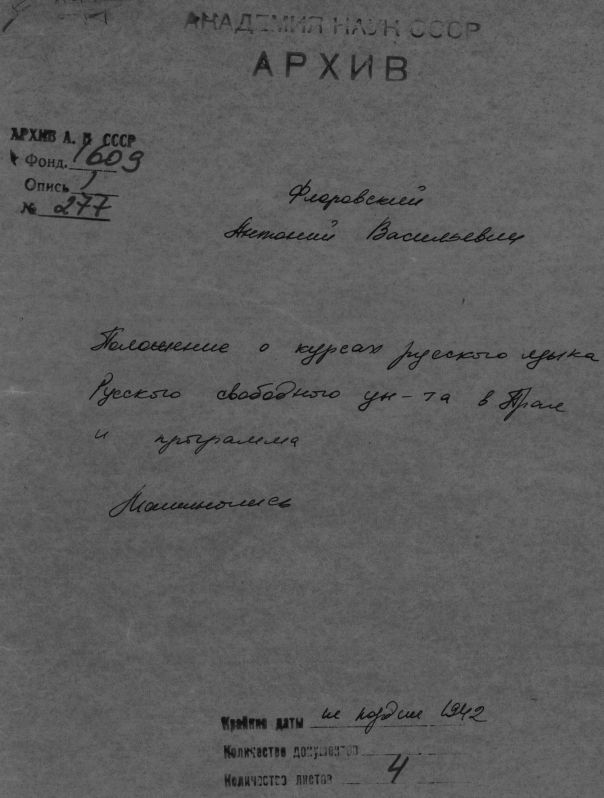 АКАДЕМИЯ НАУК СССР
АРХИВ
АРХИВ А. Н СССР
Фонд. 1609
Опись 1
№ 277
Флоровский
Антоний Васильевич
Положение о курсах русского языка
Русского свободного ун-та в Праге
и программа
Машинопись
Крайние даты не позднее 1942
Количество документов
Количество листов 4